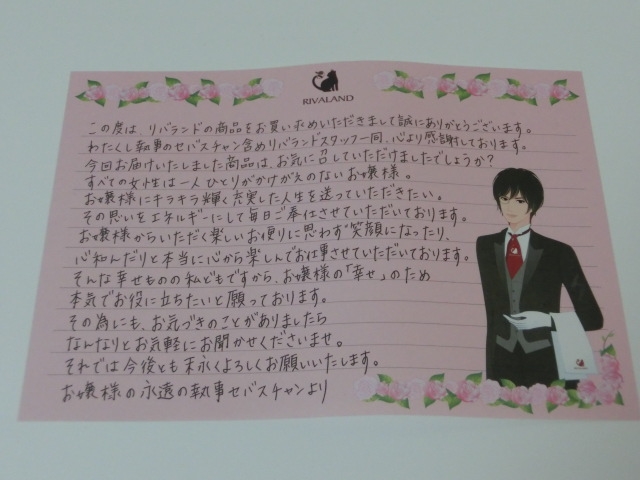 RIVALAND
この度は、リバランドの商品をお買い求めいただきまして誠にありがとうございます。
わたくし執事のセバスチャン含めリバランドスタッフ一同、心より感謝しております。
今回お届けいたしました商品は、お気に召していただけましたでしょうか?
すべての女性は一人ひとりがかけがえのないお嬢様。
お嬢様にキラキラ輝く充実した人生を送っていただきたい。
その思いをエネルギーにして毎日ご奉仕させていただいております。
お嬢様からいただく楽しいお便りに思わず笑顔になったり、
心和んだりと本当に心から楽しんでお仕事させていただいております。
そんな幸せものの私どもですから、お嬢様の「幸せ」のため
本気でお役に立ちたいと願っております。
その為にも、お気づきのことがありましたら
なんなりとお気軽にお聞かせくださいませ。
それでは今後とも末永くよろしくお願いいたします。
お嬢様の永遠の執事セバスチャンより